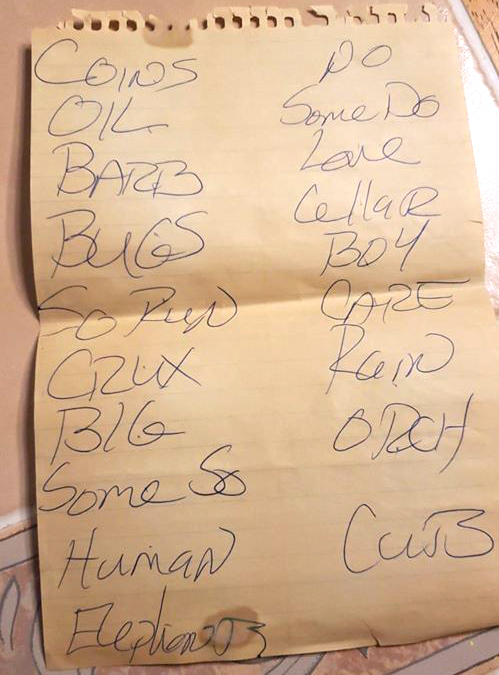 COINS
OIL
BARB
BUGS
SO RUN
CRUX
BIG
Some So
HUMAN
Elephants
DO
Some Do
Love
CellaR
BOY
CARE
Rain
ORCH